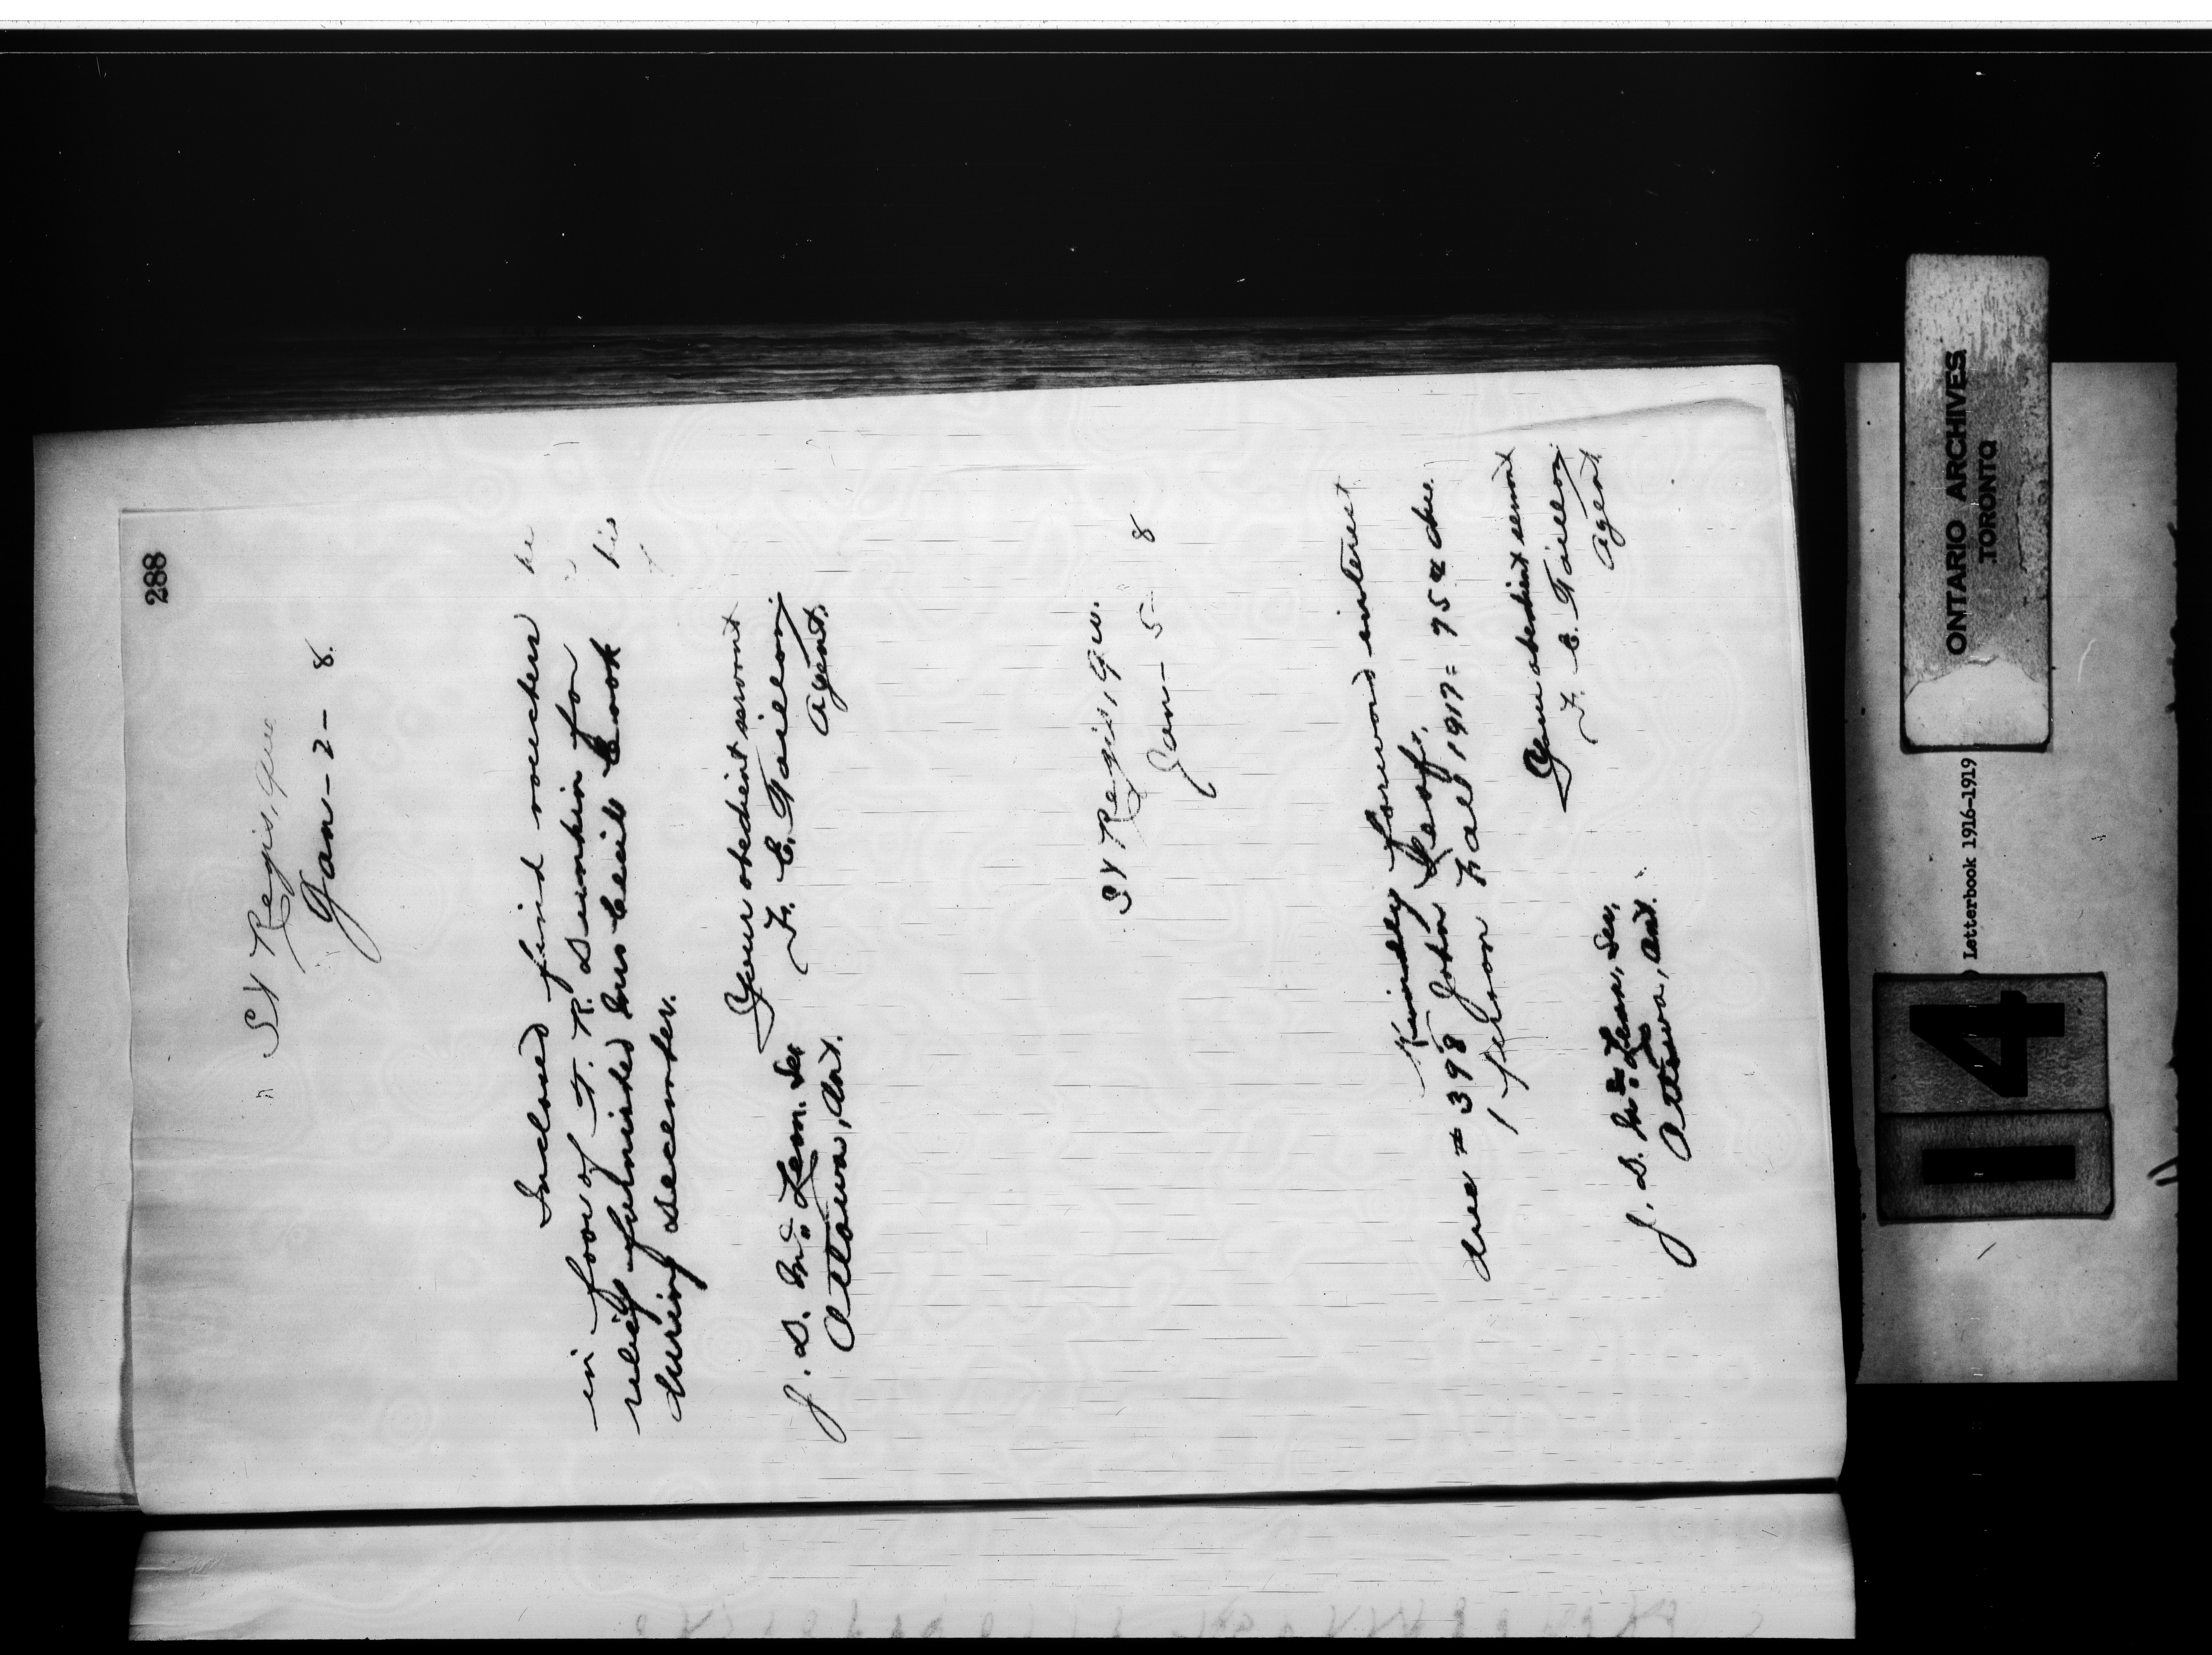 288
St Regis, Que
Jan - 2 - 8.
Inclosed find vouchers
in favor of F. R. Dumkin for
relief fulnished Mrs Cecil Cook
during December.
Your obedient servant
F. E. Taillon,
Agent.
J. D. McLean. Sec
Ottawa, Ont.
St Regis, Que.
Jan - 5 - 8
Kindly forward interest
due # 398 John Leaf,
1 person Fall 1917 = 75¢ due.
Your obedient servant
F. E. Taillon
Agent
J. D. McLean, Sec,
Ottawa, Ont.
ONTARIO ARCHIVES
TORONTO
Letterbook 1916-1919
14